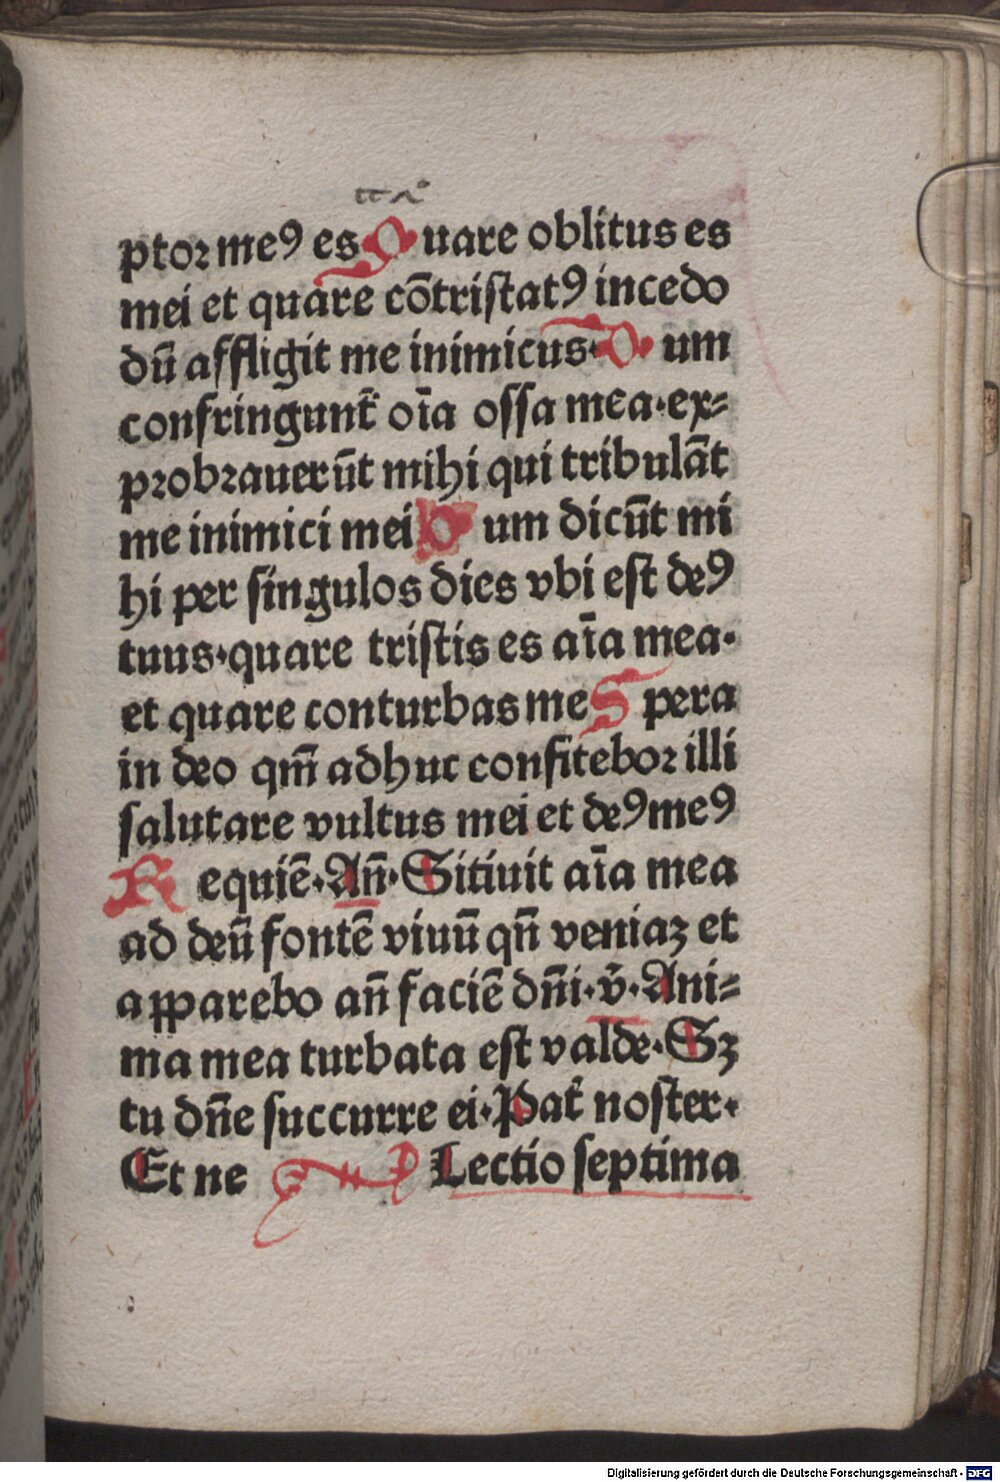 ptor meꝰ es Quare oblitus es
mei et quare cōtristatꝰ incedo
dū affligit me inimicus· Dum
confringunt̄ oīa ossa mea·ex⸗
probrauerūt mihi qui tribulāt
me inimici mei Dum dicūt mi
hi per singulos dies vbi est deꝰ
tuus·quare tristis es aīa mea·
et quare conturbas me Spera
in deo qm̄ adhuc confitebor illi
salutare vultus mei et deꝰ meꝰ
Requiē·An̄·Sitiuit aīa mea
ad deū fontē viuū qn̄ veniaꝫ et
apparebo an̄ faciē dn̄i·v̄·Ani⸗
ma mea turbata est valde·Sꝫ
tu dn̄e succurre ei·Pat̄ noster·
Et ne Lectio septima
Digitalisierung gefördert durch die Deutsche Forschungsgemeinschaft - DFG